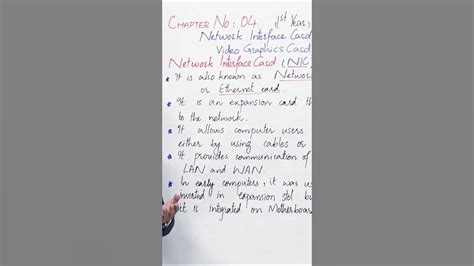 CHAPTER NO: 04 1st Year,
Network Interface Card
Video Graphics Card
Network Interface Card (NIC)
It is also known as Network
or Ethernet card.
It is an expansion card th
to the network.
It allows computer users
either by using cables or
It provides communication of
LAN and WAN.
In early computers, it was us
inserted in expansion slot bu
it is integrated on Motherboard